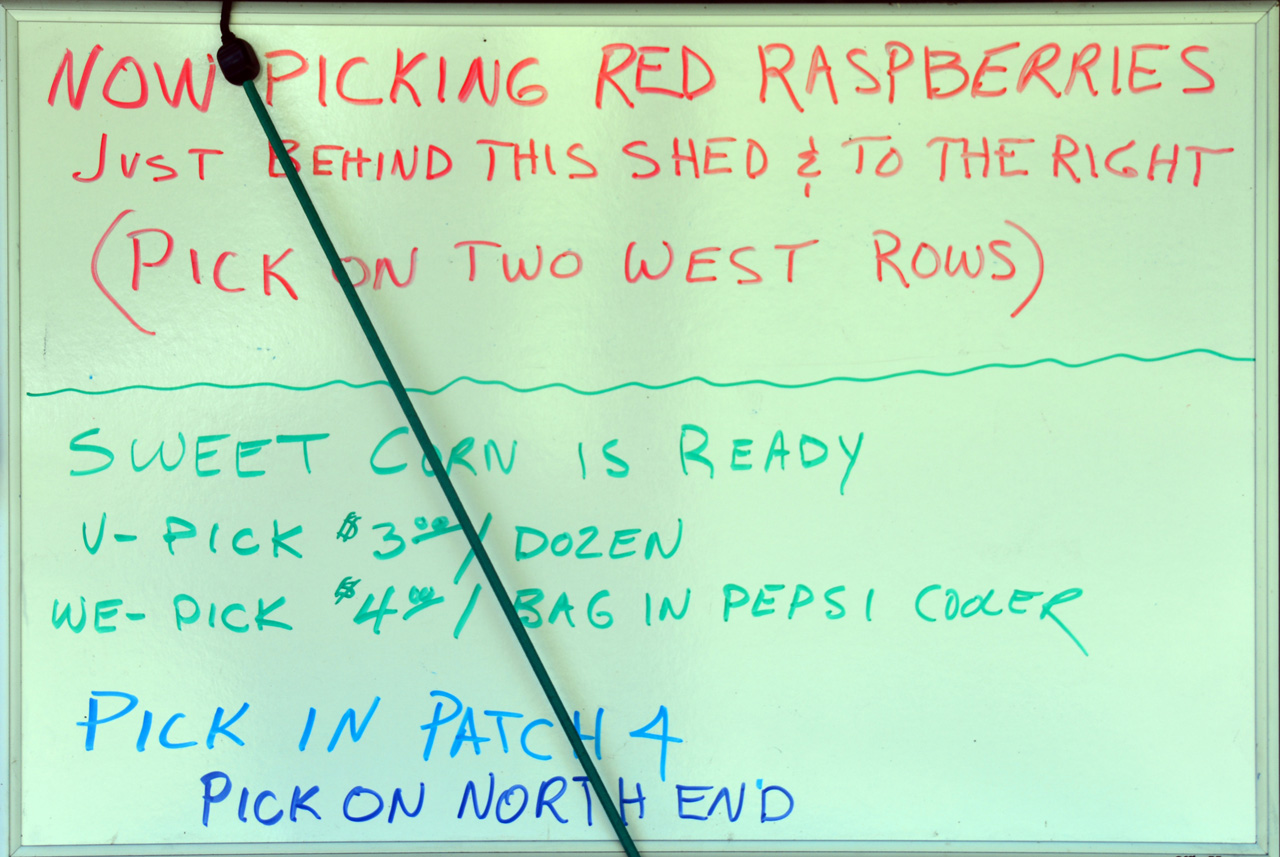 NOW PICKING RED RASPBERRIES
JUST BEHIND THIS SHED & TO THE RIGHT
(PICK ON TWO WEST ROWS)
SWEET CORN IS READY
U-PICK $3.00/DOZEN
WE-PICK $4.00/BAG IN PEPSI COOLER
PICK IN PATCH 4
PICK ON NORTH END